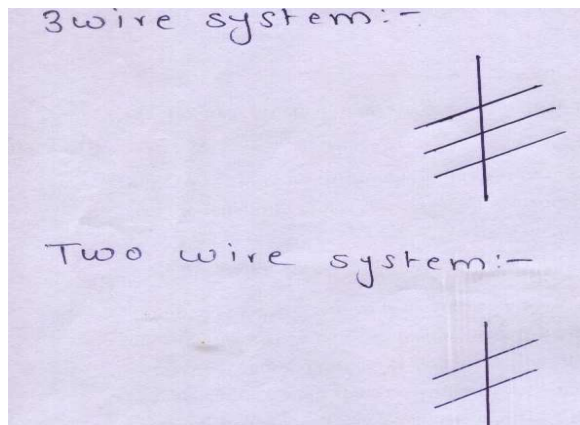 3wire system:-
Two wire system:-